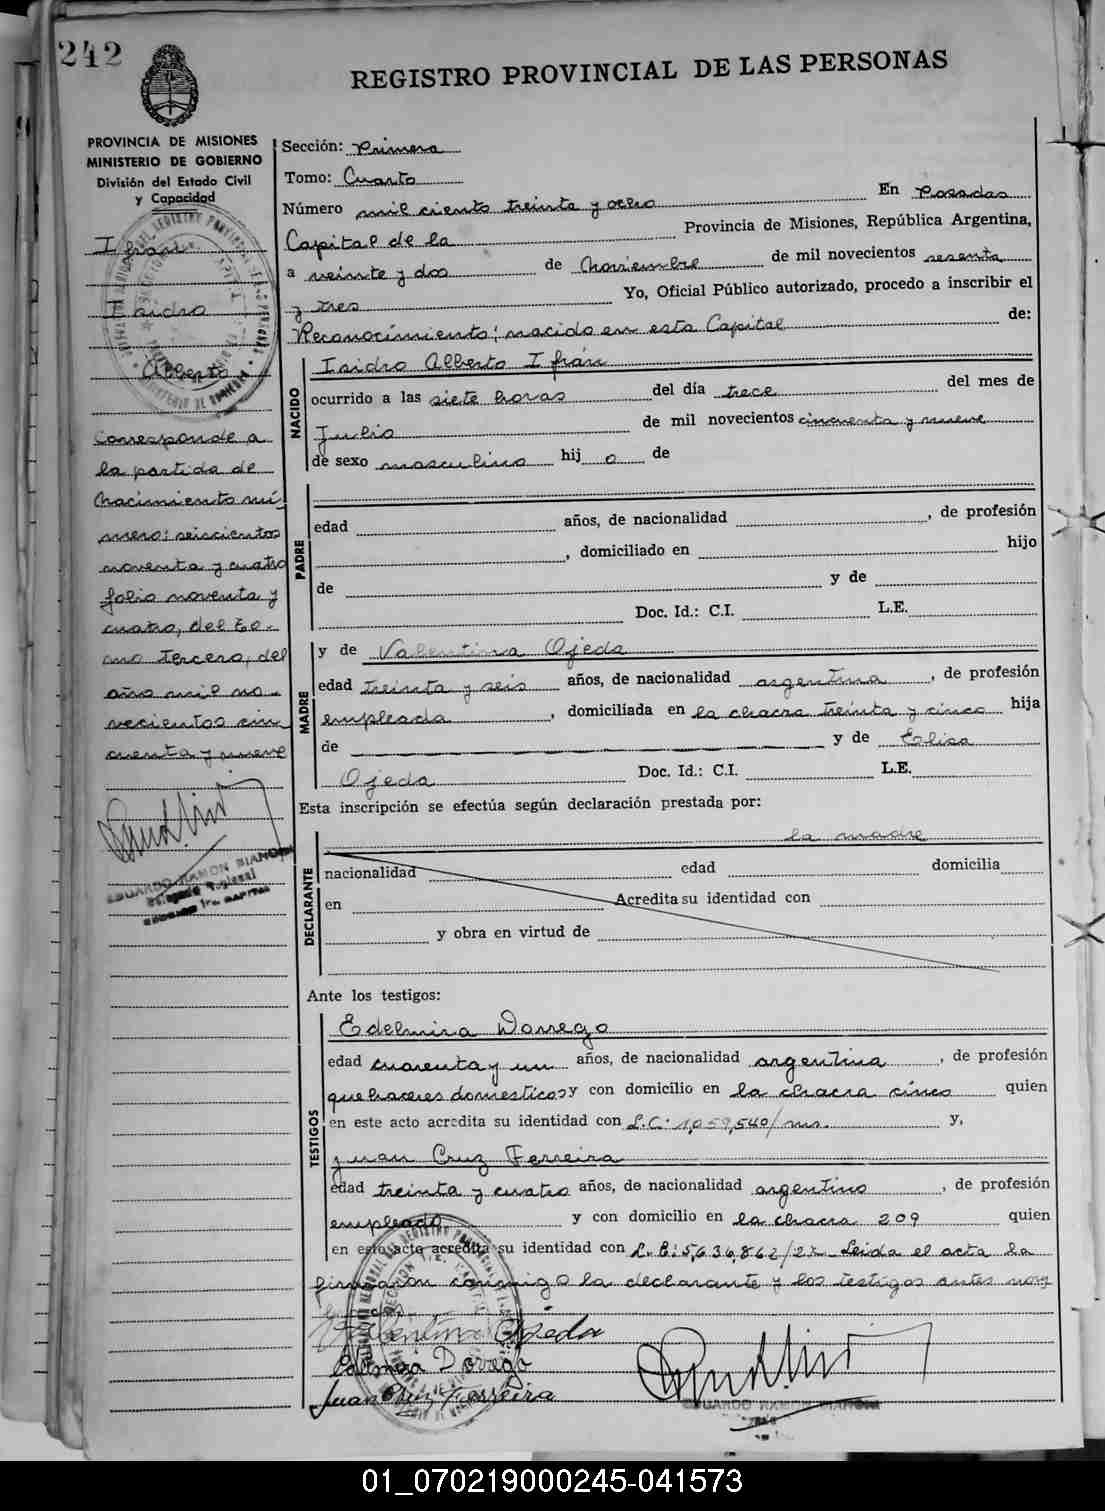 242
REGISTRO PROVINCIAL DE LAS PERSONAS
PROVINCIA DE MISIONES
MINISTERIO DE GOBIERNO
División del Estado Civil
y Capacidad
Ifrán
Isidro
Alberto
Corresponde a
la partida de
Nacimiento nú-
mero: seiscientos
noventa y cuatro
folio noventa y
cuatro, del To-
mo Tercero, del
año mil no-
vecientos cin
cuenta y nueve
EDUARDO RAMON BIANCHI
Delegado Regional
Sección: Primera
Tomo: Cuarto
Número mil ciento treinta y ocho En Posadas
Capital de la Provincia de Misiones, República Argentina,
a veinte y dos de Noviembre de mil novecientos sesenta
y tres Yo, Oficial Público autorizado, procedo a inscribir el
Reconocimiento; nacido en esta Capital de:
NACIDO
Isidro Alberto Ifrán
ocurrido a las siete horas del día trece del mes de
Julio de mil novecientos cincuenta y nueve
de sexo masculino hij o de
PADRE
edad años, de nacionalidad , de profesión
, domiciliado en hijo
de y de
Doc. Id.: C.I. L.E.
MADRE
y de Valentina Ojeda
edad treinta y seis años, de nacionalidad argentina , de profesión
empleada , domiciliada en la chacra treinta y cinco hija
de y de Elisa
Ojeda Doc. Id.: C.I. L.E.
Esta inscripción se efectúa según declaración prestada por:
la madre
DECLARANTE
nacionalidad edad domicilia
en Acredita su identidad con
y obra en virtud de
Ante los testigos:
TESTIGOS
Edelmira Dorrego
edad cuarenta y un años, de nacionalidad argentina , de profesión
quehaceres domesticos y con domicilio en la chacra cinco quien
en este acto acredita su identidad con L.C: 1,059,540/ y,
Juan Cruz Ferreira
edad treinta y cuatro años, de nacionalidad argentino , de profesión
empleado y con domicilio en la chacra 209 quien
en este acto acredita su identidad con L.E: 5,636,862/ Leida el acta la
firmaron conmigo la declarante y los testigos antes
Valentina Ojeda
Edelmira Dorrego
Juan Cruz Ferreira
EDUARDO RAMON BIANCHI
01_070219000245-041573